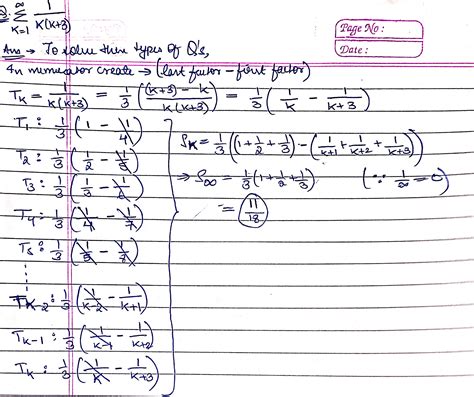 Q. ∞∑K=1 1/K(K+3)
Page No :
Date :
Ans → To solve these types of Q's,
In numerator create → (last factor - first factor)
TK = 1/K(K+3) = 1/3 ((K+3) - K / K(K+3)) = 1/3 (1/K - 1/K+3)
T1 : 1/3 (1 - 1/4)
T2 : 1/3 (1/2 - 1/5)
T3 : 1/3 (1/3 - 1/6)
T4 : 1/3 (1/4 - 1/7)
T5 : 1/3 (1/5 - 1/8)
TK-2 : 1/3 (1/K-2 - 1/K+1)
TK-1 : 1/3 (1/K-1 - 1/K+2)
TK : 1/3 (1/K - 1/K+3)
SK = 1/3 ((1 + 1/2 + 1/3) - (1/K+1 + 1/K+2 + 1/K+3))
⇒ S∞ = 1/3 (1 + 1/2 + 1/3) (∵ 1/∞ = 0)
= 11/18